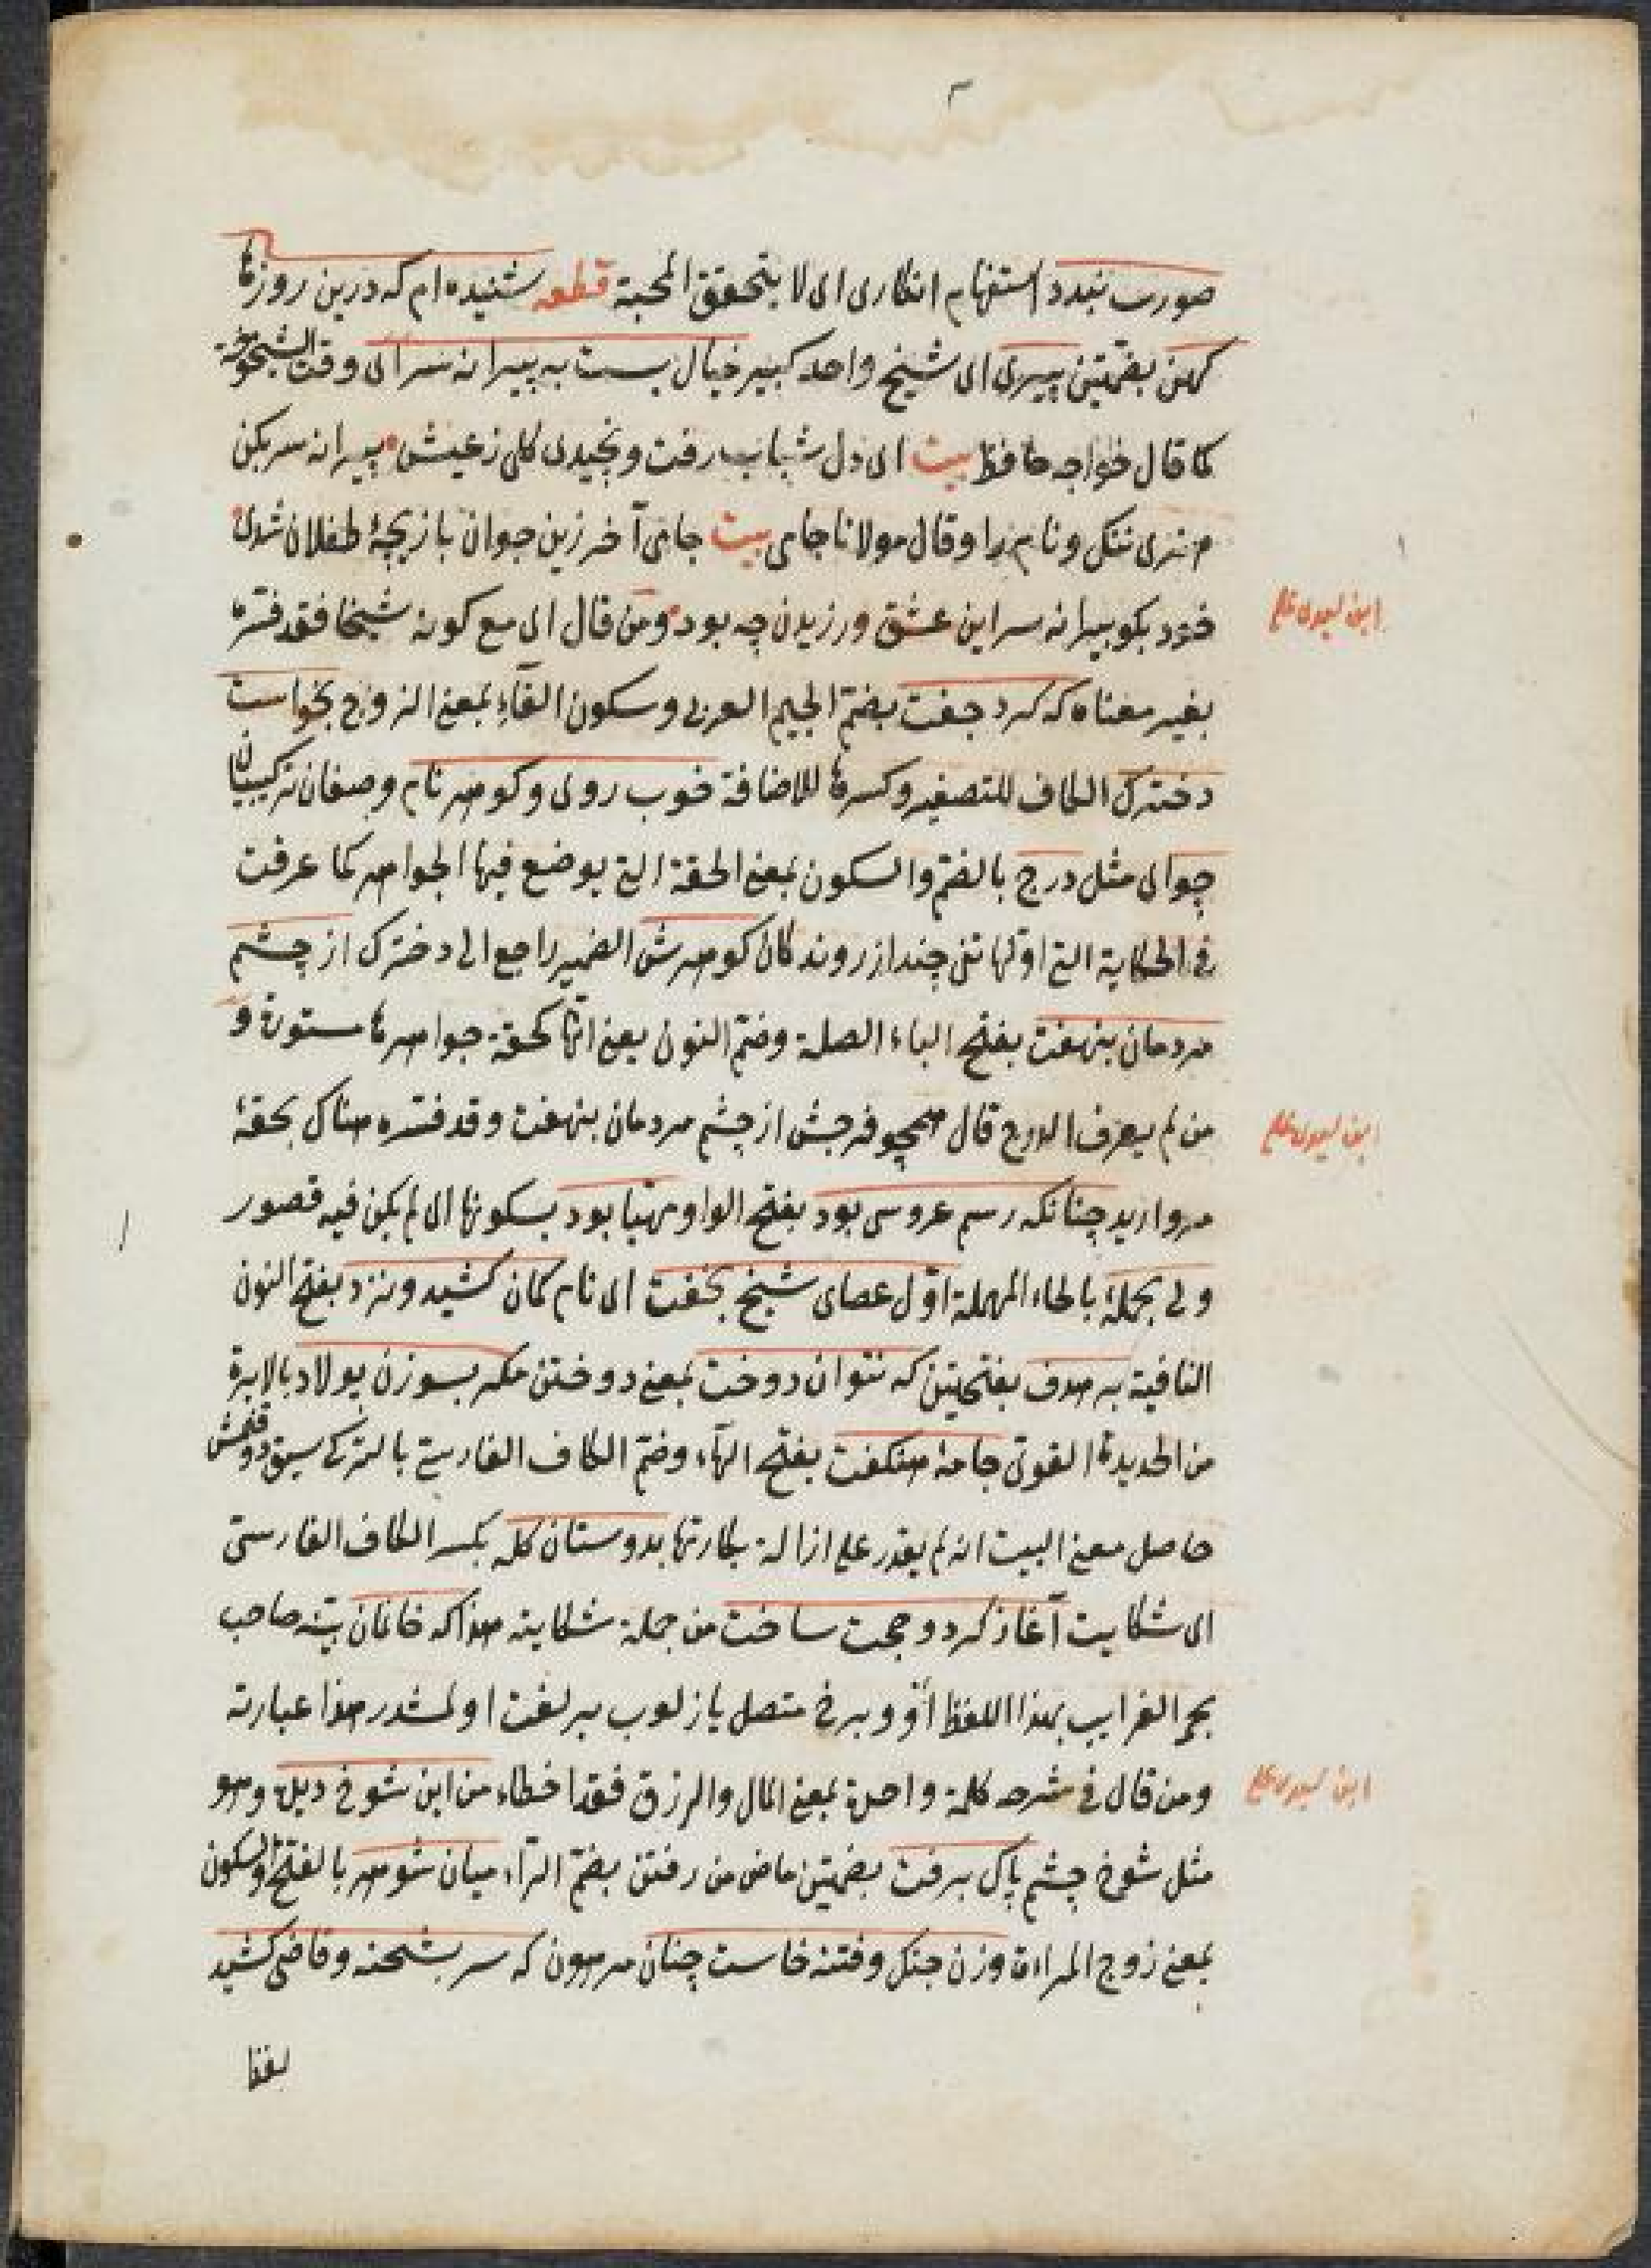 صورت نبندد استفهام انكارى اى لا يتحقق المحبة قطعه شنيده ام كه درين روزها
كهن بضمتين پيرى اى شيخ واحد كبير خيال بست به پيرانه سر اى وقت الشيخوخة
كما قال خواجه حافظ بيت اى دل شباب رفت ونچيدى گلى ز عيش پيرانه سر بكن
هنرى ننگ ونام را وقال مولانا جامى بيت جامى آخر زين جوان بازيچۀ طفلان شدى
خود بكو پيرانه سر اين عشق ورزيدن چه بود ومن قال اى مع كونه شيخا فقد فسّره
ابن ليدى على
بغير معناه كه گيرد جفت بضمّ الجيم العربى وسكون الفآء بمعنى الزوج بخواست
دخترك الكاف للتصغير وكسرها للاضافة خوب روى وكوهر نام وصفان تركيبيان
چو اى مثل درج بالضمّ والسكون بمعنى الحقة التى يوضع فيها الجواهر كما عرفت
فى الحكاية التى اوّلها تنى چند از روندكان كوهرش الضمير راجع الى دخترك از چشم
مردمان بنهفت بفتح الباء الصلة وضمّ النون يعنى انّها كحقة جواهرها مستورة و
من لم يعرف الدرج قال همچو فرجش از چشم مردمان بنهفت وقد فسّره هناك بحقۀ
ابن ليدى على
مرواريد چنانكه رسم عروسى بود بفتح الواو مهيّا بود بسكونها اى لم يكن فيه قصور
ولى بحملۀ بالحاء المهملة اوّل عصاى شيخ بخفت اى نام كمان كشيد ونزد بفتح النون
النافية به هدف بفتحيتين كه نتوان دوخت بمعنى دوختن مكر بسوزن پولاد بالابرة
من الحديدة القوى جامۀ هنگفت بفتح الهآء وضمّ الكاف الفارسىّ بالتركى سيق دوقنمش
حاصل معنى البيت انه لم يقدر على ازالة بكارتها بدوستان گله بكسر الكاف الفارسىّ
اى شكايت آغاز كرد وحجت ساخت من جملة شكايته هذا كه خانمان بيّنه صاحب
بحر الغرايب بهذا اللفظ أو وبرخ متصل يازلوب بر لغت اولمشدر هذا عبارته
ومن قال فى شرحه كلمة واحدة بمعنى المال والرزق فقد اخطاء من اين شوخ ديده وهو
ابن ليدى على
مثل شوخ چشم پاك برفت بضمتين ماضى من رفتن بضمّ الرآء ميان شوهر بالفتح والسكون
بمعنى زوج المراة وزن جنگ وفتنه خاست چنان مرهون كه سر بشحنه وقاضى كشيد
لفظا